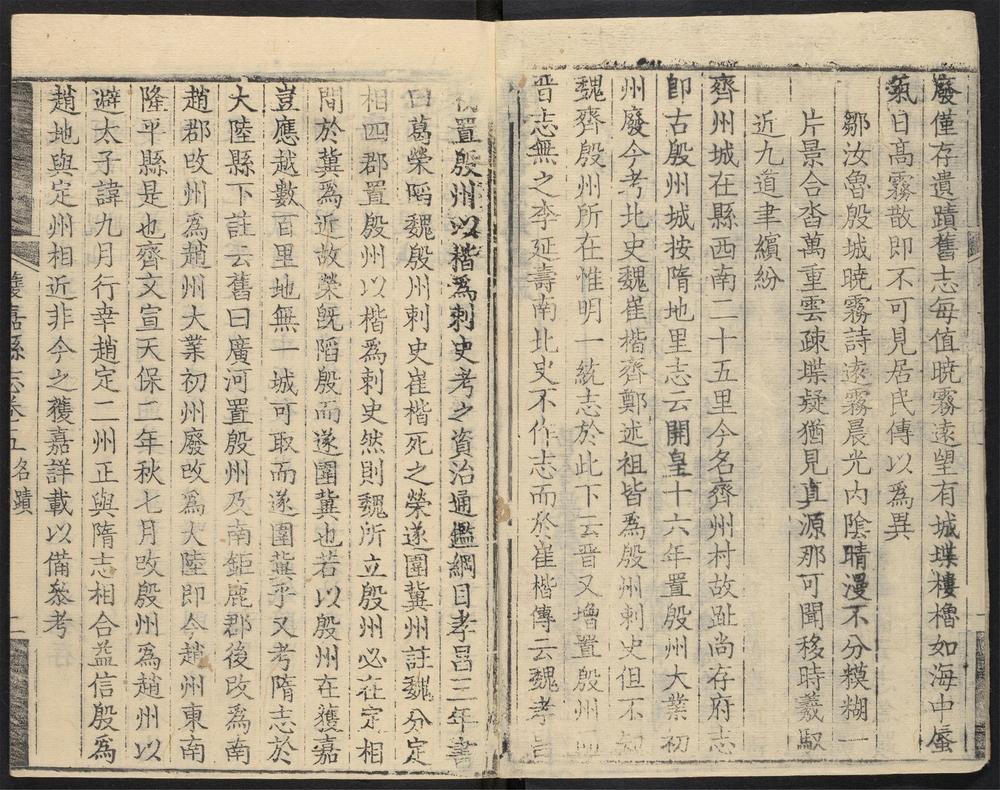 廢僅存遺蹟舊志每值曉霧遠望有城堞樓櫓如海中蜃
氣日高霧散即不可見居民傳以為異
鄒汝魯殷城曉霧詩遠霧晨光內陰晴漫不分糢糊一
片景合沓萬重雲疎堞疑猶見真源那可聞移時羲馭
近九道聿繽紛
齊州城在縣西南二十五里今名齊州村故趾尚存府志
即古殷州城按隋地里志云開皇十六年置殷州大業初
州廢今考北史魏崔楷齊鄭述祖皆為殷州刺史但不知
魏齊殷州所在惟明一統志於此下云晋又增置殷州而
晋志無之李延壽南北史不作志而於崔楷傳云魏孝昌
置殷州以楷為刺史考之資治通鑑綱目孝昌三年書
曰葛榮陷魏殷州刺史崔楷死之榮遂圍冀州註魏分定
相四郡置殷州以楷為刺史然則魏所立殷州必在定相
間於冀為近故榮既陷殷而遂圍冀也若以殷州在獲嘉
豈應越數百里地無一城可取而遂圍冀乎又考隋志於
大陸縣下註云舊曰廣河置殷州及南鉅鹿郡後改為南
趙郡改州為趙州大業初州廢改為大陸即今趙州東南
隆平縣是也齊文宣天保二年秋七月改殷州為趙州以
避太子諱九月行幸趙定二州正與隋志相合益信殷為
趙地與定州相近非今之獲嘉詳載以備參考
獲嘉縣志卷十五 名蹟 二